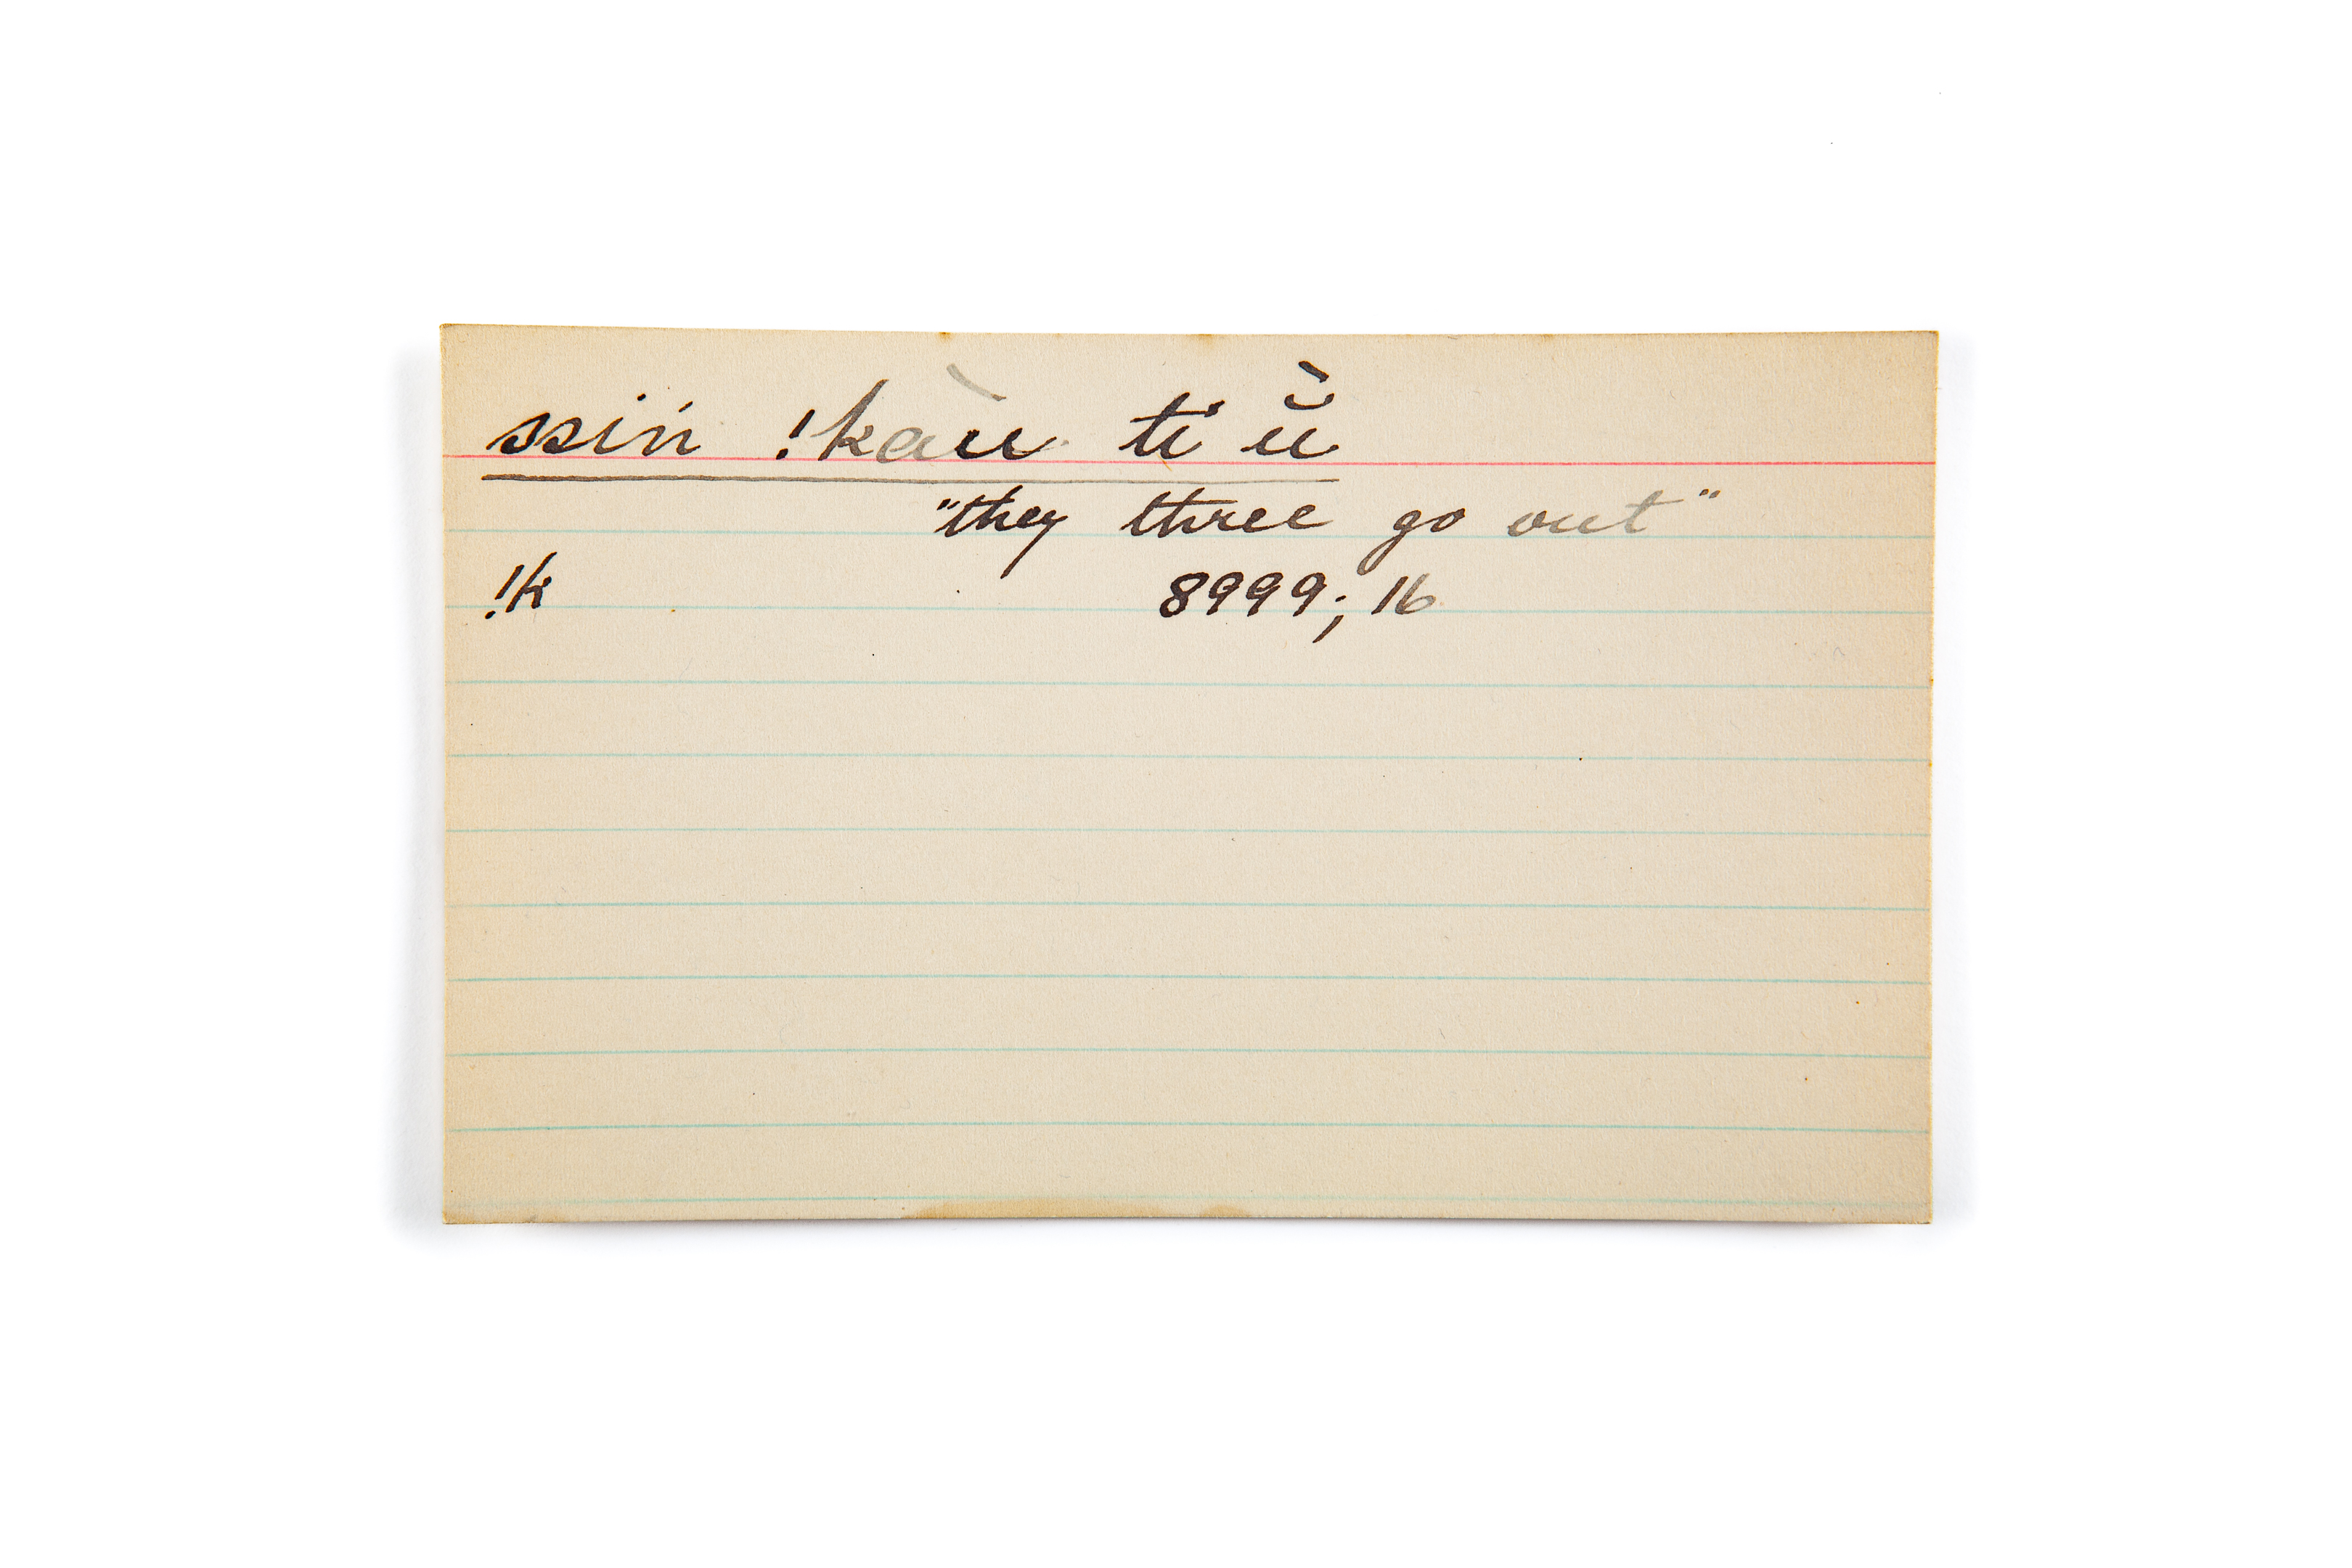 ssiń !kàu ti ŭ̀
"they three go out"
!k 8999; 16